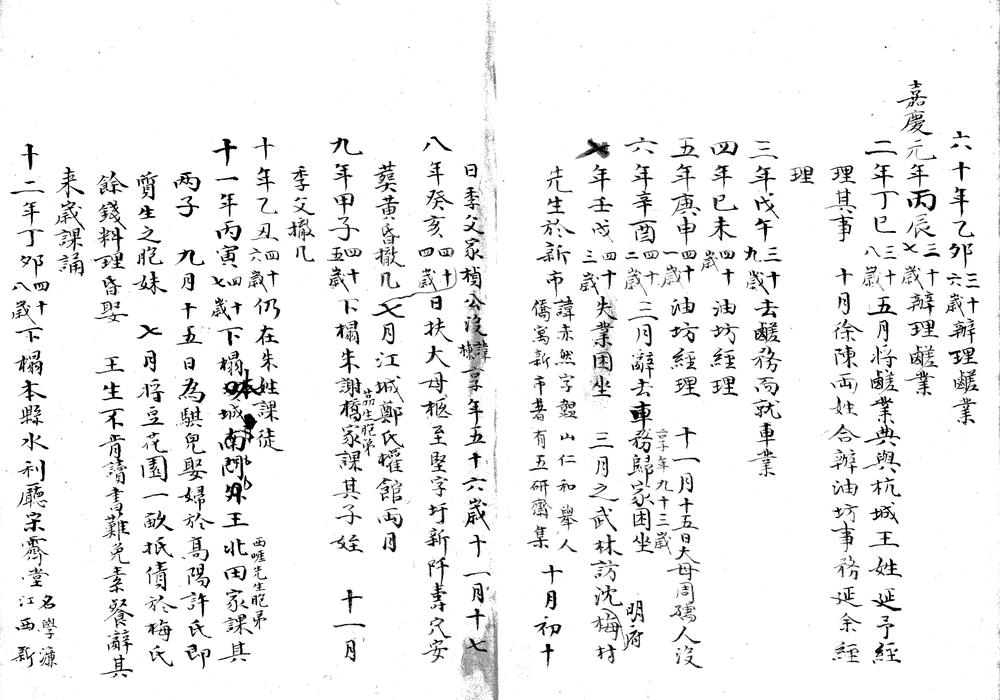 六十年乙卯三十六歲辦理鹺業
嘉慶元年丙辰三十七歲辦理鹺業
二年丁巳三十八歲五月將鹺業典與杭城王姓延予經
理其事　十月徐陳兩姓合辦油坊事務延余經
理
三年戊午三十九歲去鹺務而就車業
四年己未四十歲油坊經理
五年庚申四十一歲油坊經理　十一月十五日大母周孺人沒享年九十三歲
六年辛酉四十二歲三月辭去車務歸家困坐
七年壬戌四十三歲失業困坐　三月之武林訪沈梅村明府
先生於新市諱赤然字韞山仁和舉人僑寓新市著有五研齋集　十月初十
日季父家楨公沒諱棟享年五十六歲十一月十七
八年癸亥四十四歲日扶大母柩至堅字圩新阡壽穴安
葬黃昏撤几　七月江城鄭氏權館兩月
九年甲子四十五歲下榻朱謝橋家嵒生胞弟課其子姪　十一月
季父撤几
十年乙丑四十六歲仍在朱姓課徒
十一年丙寅四十七歲下榻本城南門外王北田家西崕先生胞弟課其
兩子　九月十五日為騏兒娶婦於高陽許氏即
質生之胞妹　七月將豆花園一畝抵債於梅氏
餘錢料理昏娶　王生不肯讀書難免素餐辭其
来歲課誦
十二年丁卯四十八歲下榻本縣水利廳宗霽堂名學濂江西新